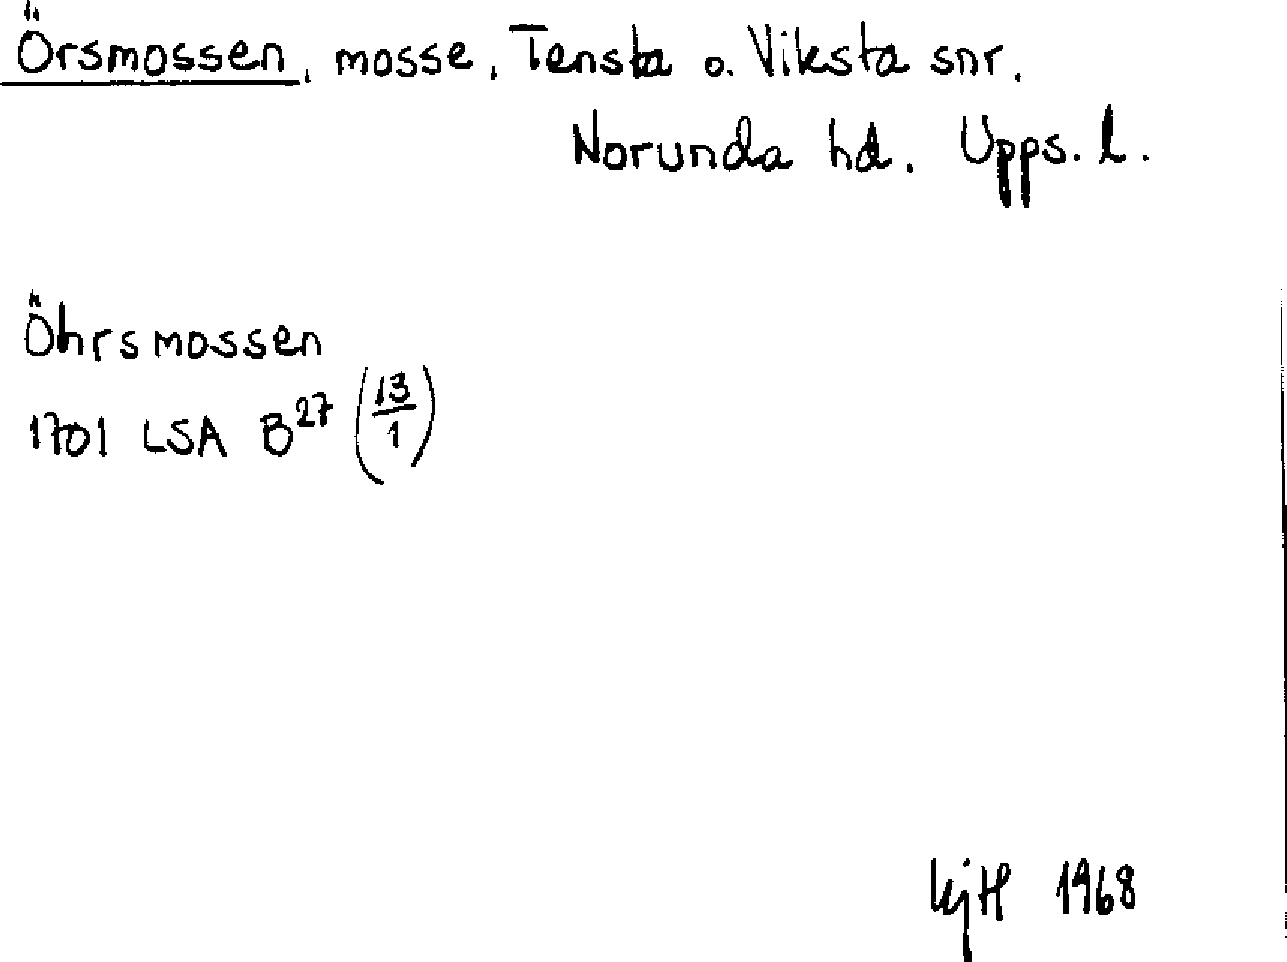 Örsmossen, mosse, Tensta o. Viksta snr.
Norunda hd. Upps. l.
Öhrsmossen
1701 LSA B²⁷ (13/1)
KjH 1968